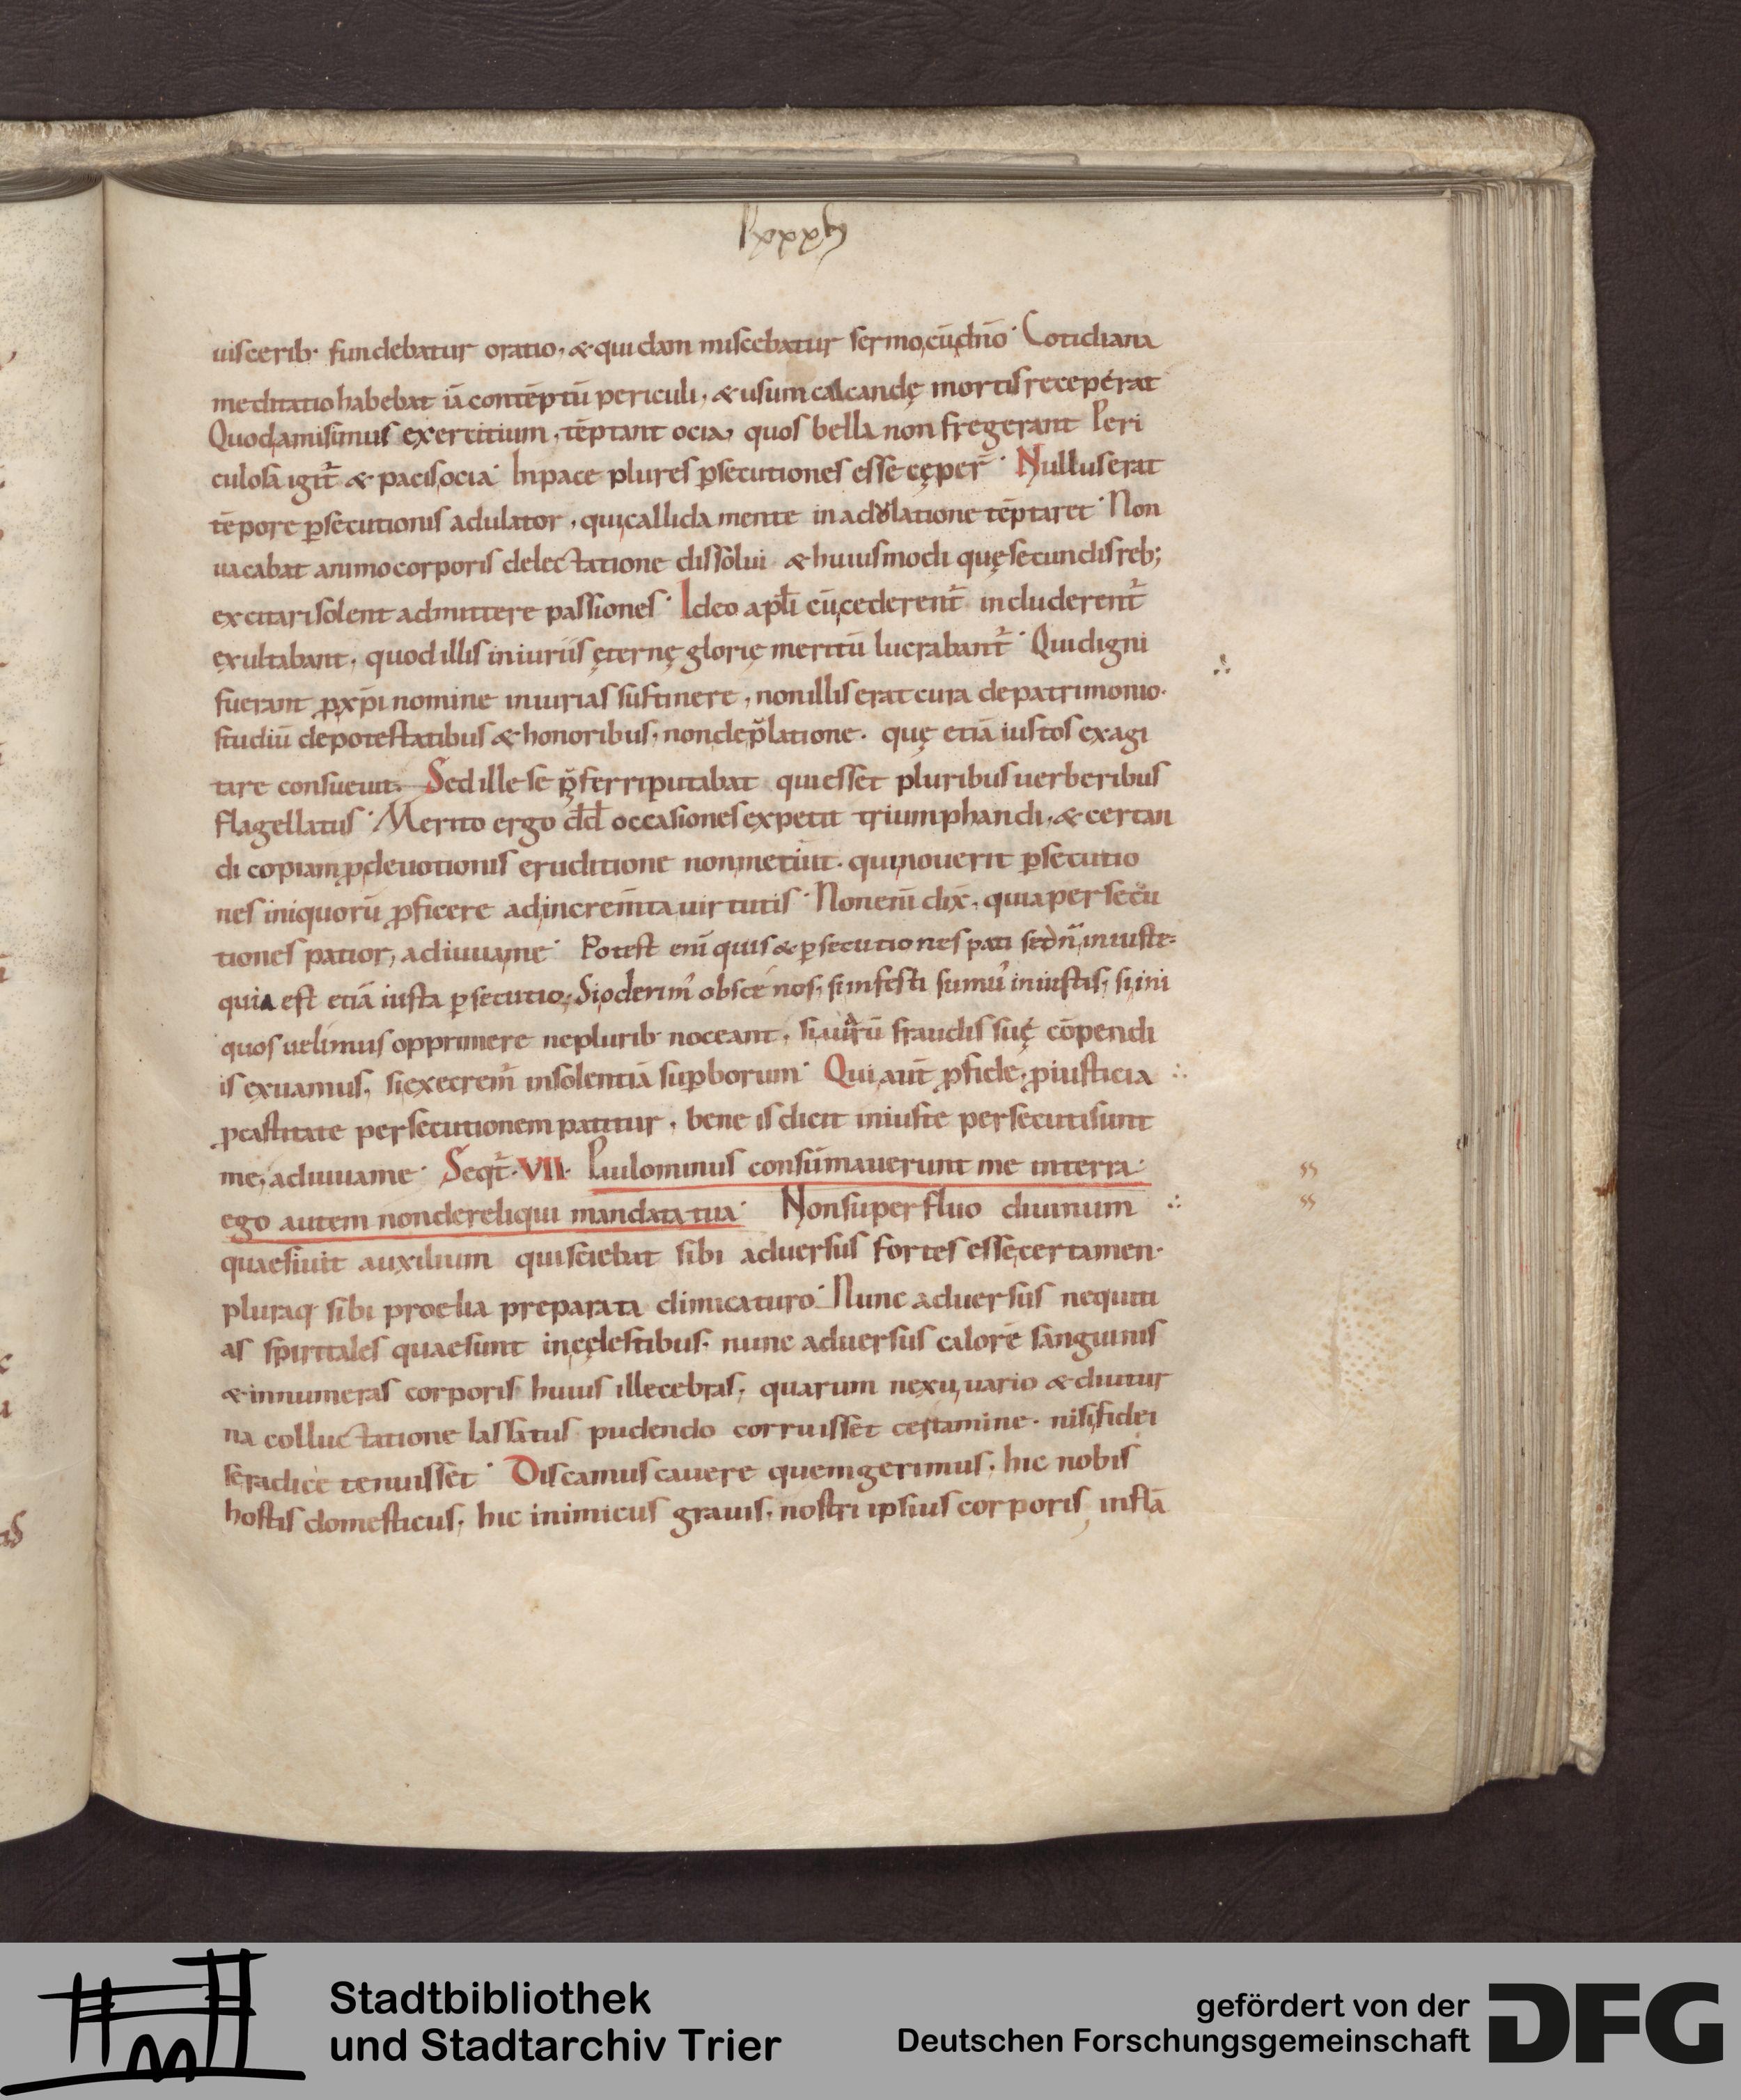 lxxxv
uiscerib· fundebatur oratio, & quidam miscebatur sermo cū dno· Cotidiana
meditatio habebat iā contēptū periculi, & usum calcandę mortis receperat
Quod amisimus exercitium, tēptant ocia, quos bella non fregerant Peri
culosa igit̄ & pacis ocia· In pace plures p̱secutiones esse cęper̄· Nullus erat
tēpore p̱secutionis adulator, qui callida mente in adulatione tēptaret· Non
uacabat animo corporis delectatione dissolui & huiusmodi quę secundis reb;
excitari solent admittere passiones· Ideo apłi cū cederent̄ includerent̄
exultabant, quod illis iniuriis ęternę glorię meritū lucrabant̄· Qui digni
fuerant p̱ xp̄i nomine iniurias sustinere, non illis erat cura de patrimonio·
studiū de potestatibus & honoribus, non de p̄latione· quę etiā iustos exagi
tare consueuit· Sed ille se p̄ferri putabat qui esset pluribus uerberibus
flagellatus· Merito ergo dd̄ occasiones expetit triumphandi, & certan
di copiam p̱ deuotionis eruditione non metuit· qui nouerit p̱secutio
nes iniquorū p̱ficere ad increm̄ta uirtutis· Non enī dix̄, quia persecu
tiones patior, adiuua me· Potest enī quis & p̱secutiones pati sed n̄ iniuste·
quia est etiā iusta p̱secutio; Si oderim̛ obscenos, si infesti sumư iniustis, si ini
quos uelimus opprimere ne plurib· noceant, si auarū fraudis suę cōpendi
is exuamus, si execrem̄ insolentiā sup̱borum· Qui aut̄ p̱ fide, p̱ iusticia
p̱ castitate persecutionem patitur, bene is dicit iniuste persecuti sunt
me, adiuua me· Seqt̄· VII· Paulominus consūmauerunt me in terra·
ego autem non dereliqui mandata tua· Non superfluo diuinum
quaesiuit auxilium qui sciebat sibi aduersus fortes esse certamen·
pluraq· sibi proelia preparata dimicaturo· Nunc aduersus nequiti
as spiritales quae sunt in cęlestibus, nunc aduersus calorē sanguinis
& innumeras corporis huius illecebras, quarum nexu uario & diutur
na colluctatione lassatus pudendo corruisset certamine· nisi fidei
se radice tenuisset· Discamus cauere quem gerimus, hic nobis
hostis domesticus, hic inimicus grauis, nostri ipsius corporis, instā
Stadtbibliothek
und Stadtarchiv Trier
gefördert von der
Deutschen Forschungsgemeinschaft
DFG